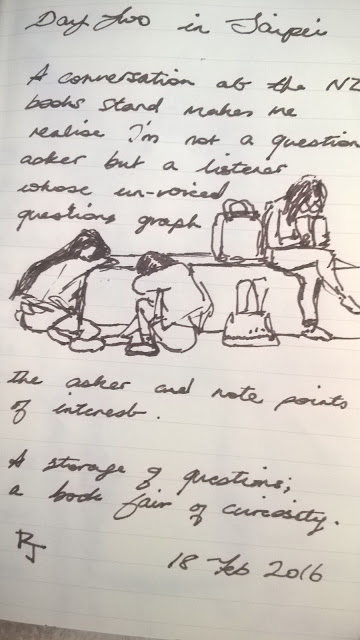 Day two in Taipei
A conversation at the NZ
books stand makes me
realise I'm not a question
asker but a listener
whose un-voiced
questions graph
the asker and note points
of interest.
A storage of questions;
a book fair of curiosity.
RJ
18 Feb 2016